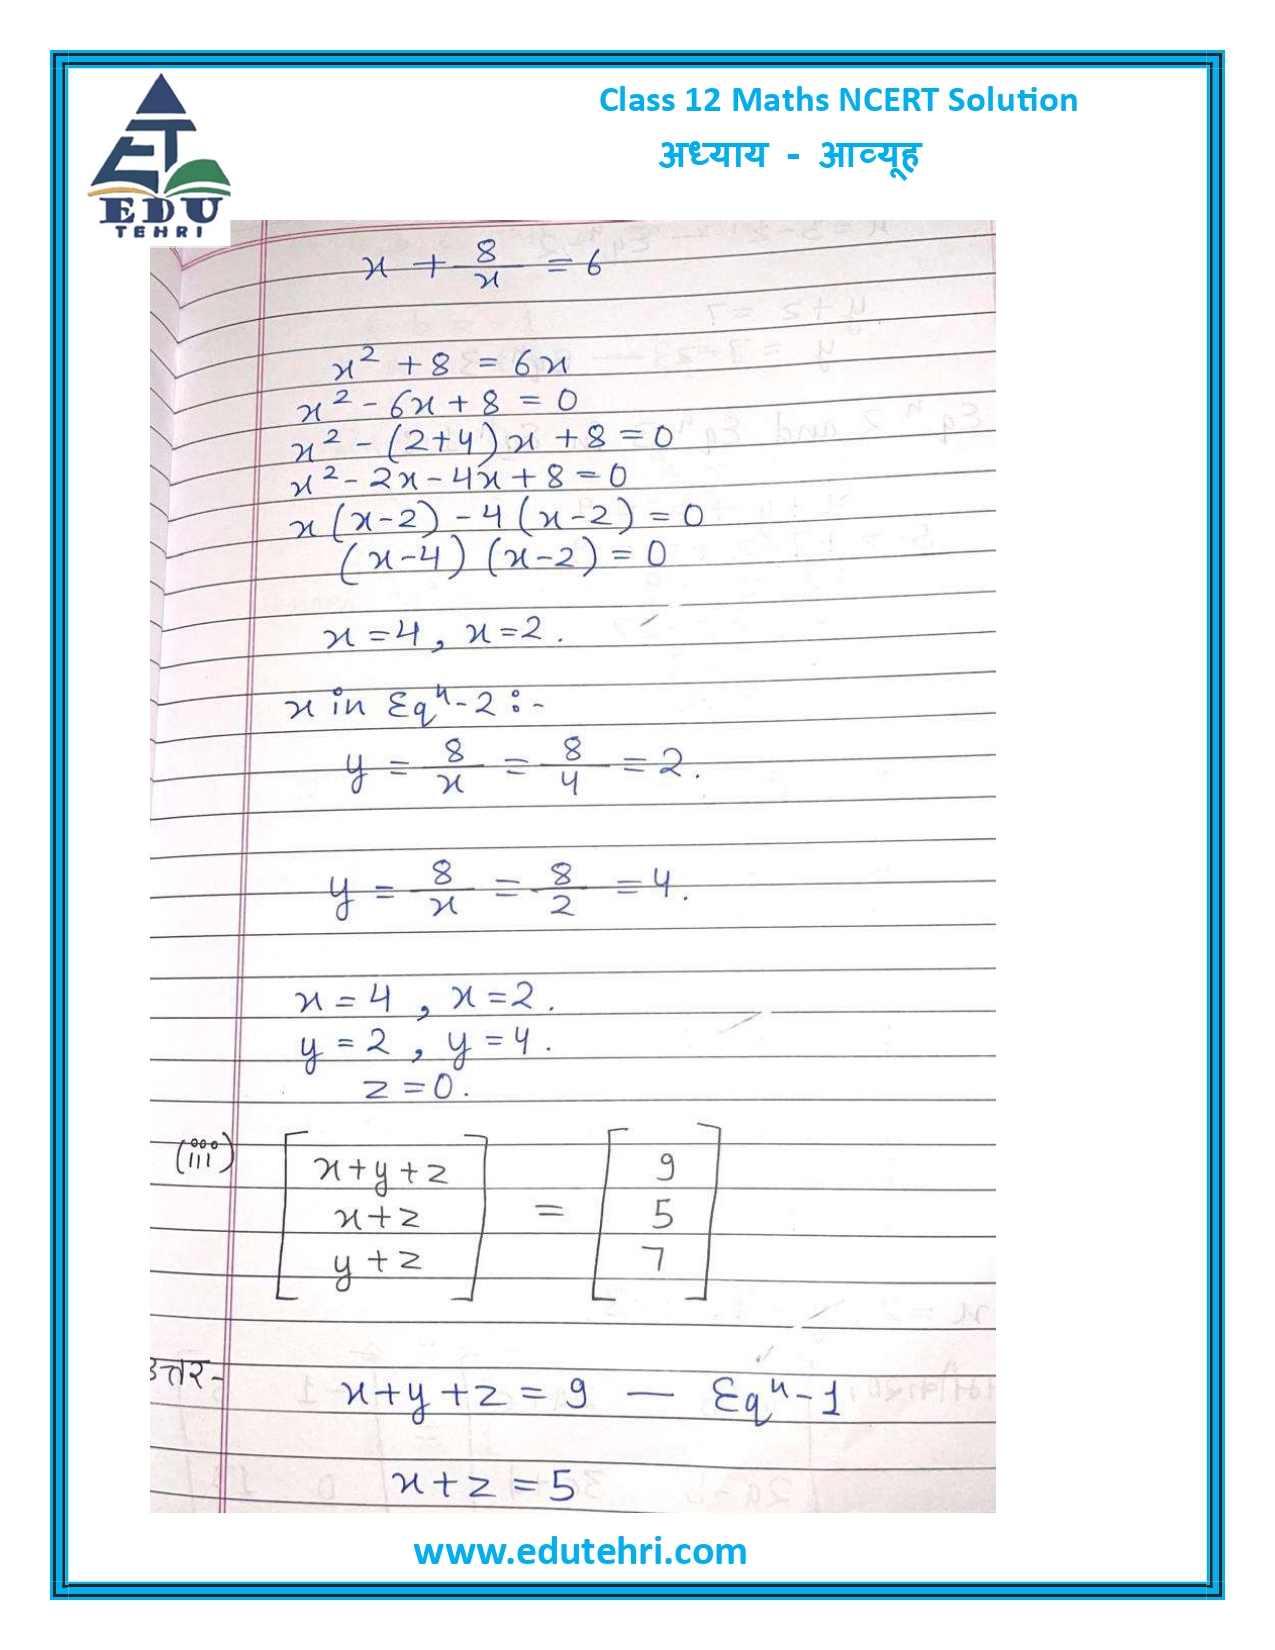 Class 12 Maths NCERT Solution
अध्याय - आव्यूह
ET
EDU
TEHRI
x + 8/x = 6
x² + 8 = 6x
x² - 6x + 8 = 0
x² - (2+4)x + 8 = 0
x² - 2x - 4x + 8 = 0
x(x-2) - 4(x-2) = 0
(x-4) (x-2) = 0
x = 4, x = 2.
x in Eqⁿ-2:-
y = 8/x = 8/4 = 2.
y = 8/x = 8/2 = 4.
x = 4, x = 2.
y = 2, y = 4.
z = 0.
(iii) [x+y+z = [9
x+z 5
y+z] 7]
उत्तर- x+y+z = 9 — Eqⁿ-1
x+z = 5
www.edutehri.com